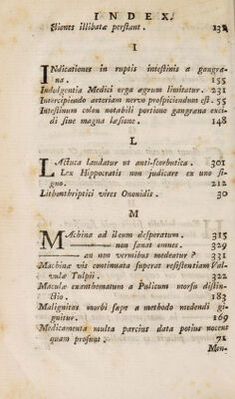 INDEX.
ctiones illibatæ perstant. 132
I
Indicationes in ruptis intestinis a gangræ-
na. 155
Indulgentia Medici erga ægrum limitatur. 231
Intercipiendo arteriam nervo prospiciendum est. 55
Intestinum colon notabili portione gangræna exci-
di sine magna læsione. 148
L
Lactuca laudatur ut anti-scorbutica. 301
Lex Hippocratis non judicare ex uno si-
gno. 212
Lithonthriptici vires Ononidis. 30
M
Machina ad ileum desperatum. 315
—— non sanat omnes. 329
—— an non vermibus medeatur? 331
Machinæ vis continuata superat resistentiam Val-
vulæ Tulpii. 322
Maculæ exanthematum a Pulicum morsu distin-
ctio. 183
Malignitas morbi sæpe a methodo medendi gi-
gnitur. 169
Medicamenta multa parcius data potius nocent
quam prosunt. 71
Men-